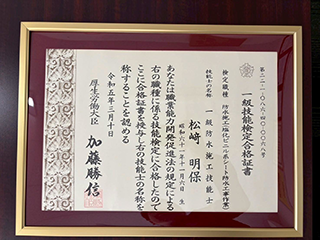 第二二-一-〇八六-二四-〇〇六八号
一級技能検定合格証書
検定職種 防水施工(塩化ビニル系シート防水工事作業)
技能士の名称 一級防水施工技能士
松﨑 明保
昭和六十一年十一月六日生
あなたは職業能力開発促進法の規定による
右の職種に係る技能検定に合格したので
ここに合格証書を授与し右の技能士の名称を
称することを認める
令和五年三月十日
厚生労働大臣 加藤勝信